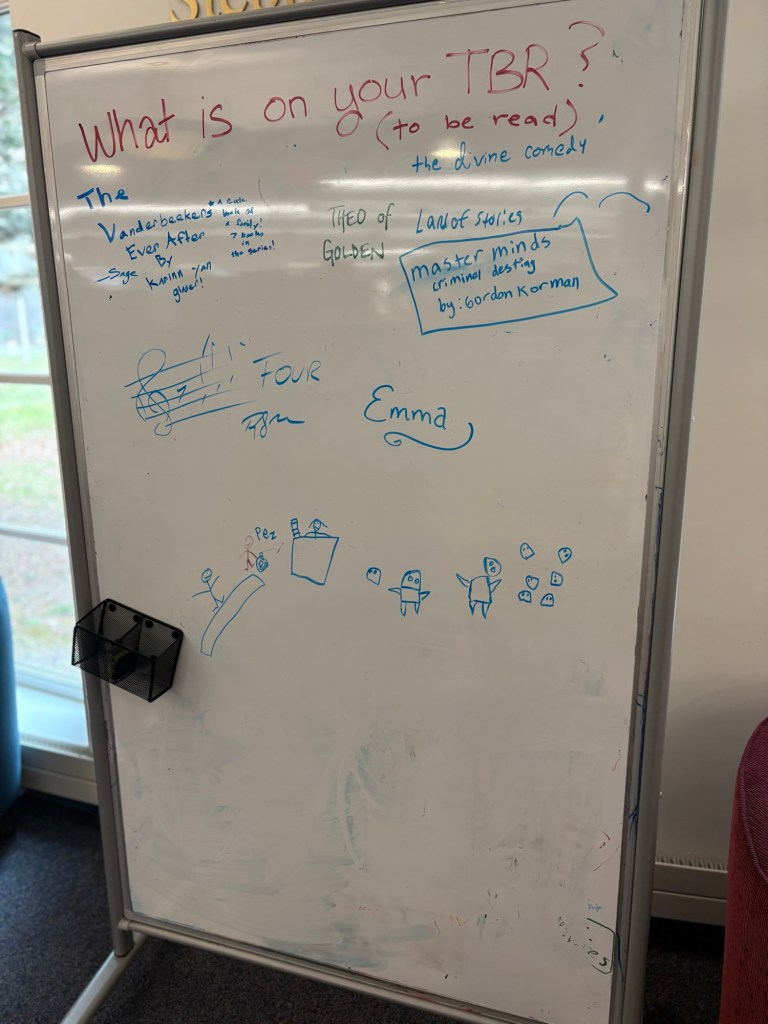 What is on your TBR?
(to be read)
the divine comedy
The
Vanderbeekers
Ever After
By
Sage Karina Yan
glaser!
* A cute
book of
a family!
7 books
in
the series!
THEO of
GOLDEN
Land of Stories
master minds
criminal destiny
by: Gordon Korman
FOUR
Emma
Pez